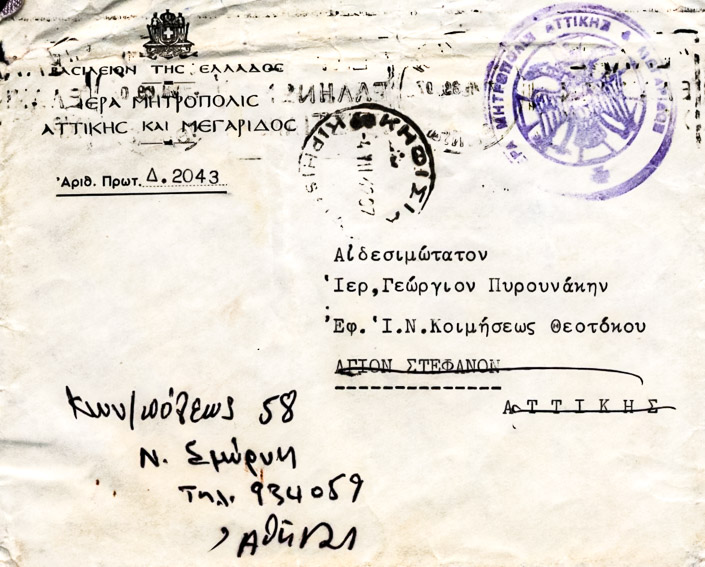 ΒΑΣΙΛΕΙΟΝ ΤΗΣ ΕΛΛΑΔΟΣ
ΙΕΡΑ ΜΗΤΡΟΠΟΛΙΣ
ΑΤΤΙΚΗΣ ΚΑΙ ΜΕΓΑΡΙΔΟΣ
Ἀριθ. Πρωτ. Δ. 2043
ΙΕΡΑ ΜΗΤΡΟΠΟΛΙΣ ΑΤΤΙΚΗΣ
ΚΗΦΙΣΙΑ
Αἰδεσιμώτατον
Ἱερ,Γεώργιον Πυρουνάκην
Ἐφ. Ἱ.Ν.Κοιμήσεως Θεοτόκου
ΑΓΙΟΝ ΣΤΕΦΑΝΟΝ
Α Τ Τ Ι Κ Η Σ
Κων/πόλεως 58
Ν. Σμύρνη
Τηλ. 934059
Ἀθήνα